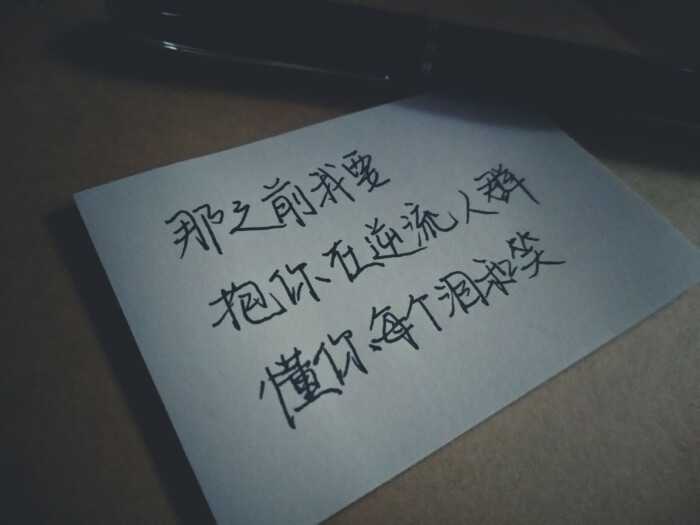 那之前我要
抱你在逆流人群
懂你每个泪和笑